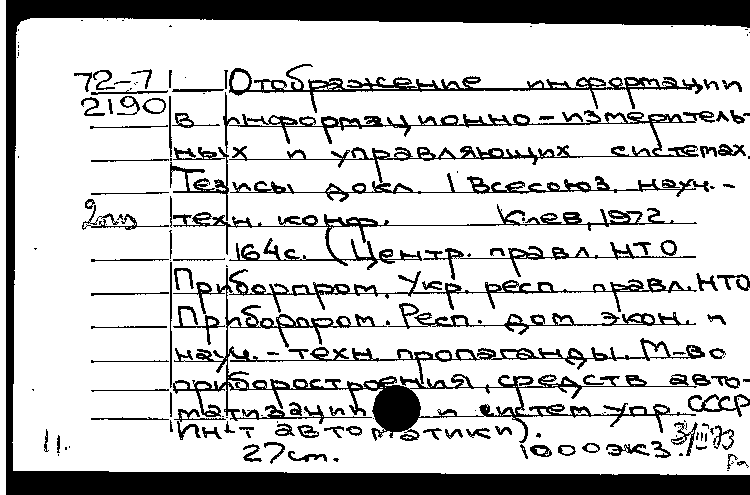 72-7 Отображение информации
2190 в информационно-измеритель-
ных и управляющих системах.
Тезисы докл. I Всесоюз. науч.-
техн. конф. Киев, 1972.
164с. (Центр. правл. НТО
Приборпром. Укр. респ. правл. НТО
Приборпром. Респ. дом экон. и
науч.-техн. пропаганды. М-во
приборостроения, средств авто-
матизации и систем упр. СССР
Ин-т автоматики).
11. 27см. 1000экз. 3/III73